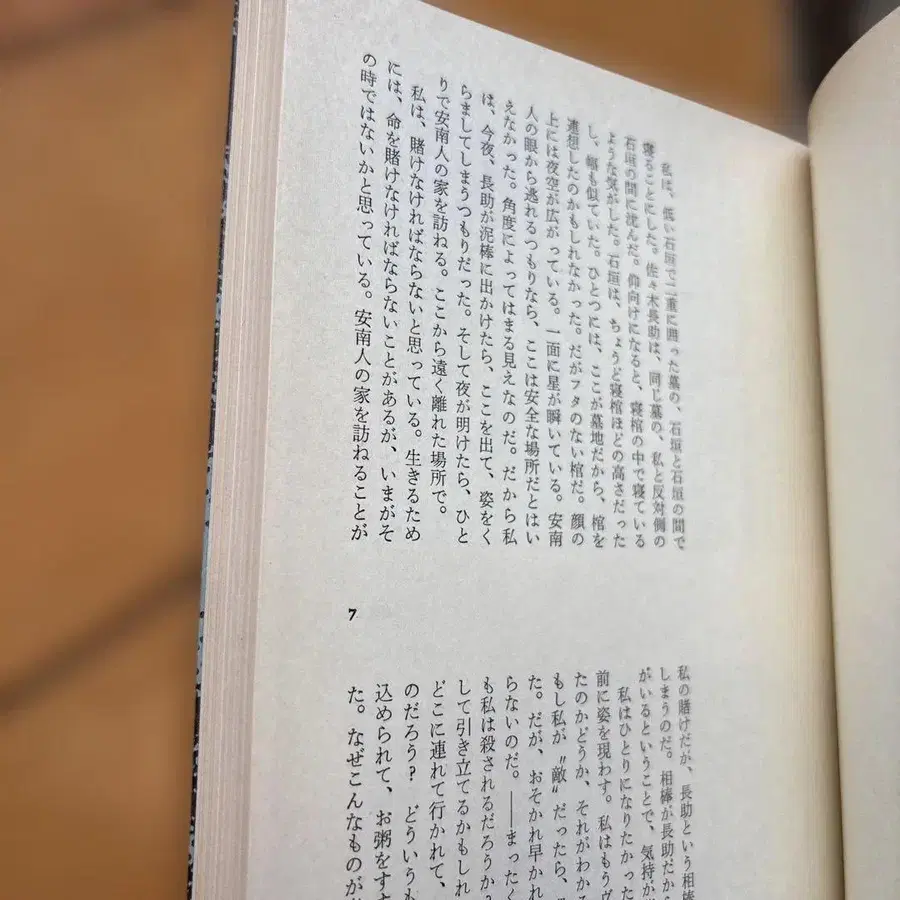 私は、低い石垣で二重に囲った墓の、石垣と石垣の間で
寝ることにした。佐々木長助は、同じ墓の、私と反対側の
石垣の間に沈んだ。仰向けになると、寝棺の中で寝ている
ような気がした。石垣は、ちょうど寝棺ほどの高さだった
し、幅も似ていた。ひとつには、ここが墓地だから、棺を
連想したのかもしれなかった。だがフタのない棺だ。顔の
上には夜空が広がっている。一面に星が瞬いている。安南
人の眼から逃れるつもりなら、ここは安全な場所だとはい
えなかった。角度によってはまる見えなのだ。だから私
は、今夜、長助が泥棒に出かけたら、ここを出て、姿をく
らましてしまうつもりだった。そして夜が明けたら、ひと
りで安南人の家を訪ねる。ここから遠く離れた場所で。
私は、賭けなければならないと思っている。生きるため
には、命を賭けなければならないことがあるが、いまがそ
の時ではないかと思っている。安南人の家を訪ねることが
7
私の賭けだが、長助という相棒
しまうのだ。相棒が長助だから
がいるということで、気持が
私はひとりになりたかった
前に姿を現わす。私はもうヴ
たのかどうか、それがわか
もし私が〝敵〟だったら、
た。だが、おそかれ早かれ
らないのだ。――まったく
も私は殺されるだろうか?
して引き立てるかもしれ
どこに連れて行かれて、
のだろう? どういうも
込められて、お粥をす
た。なぜこんなものが